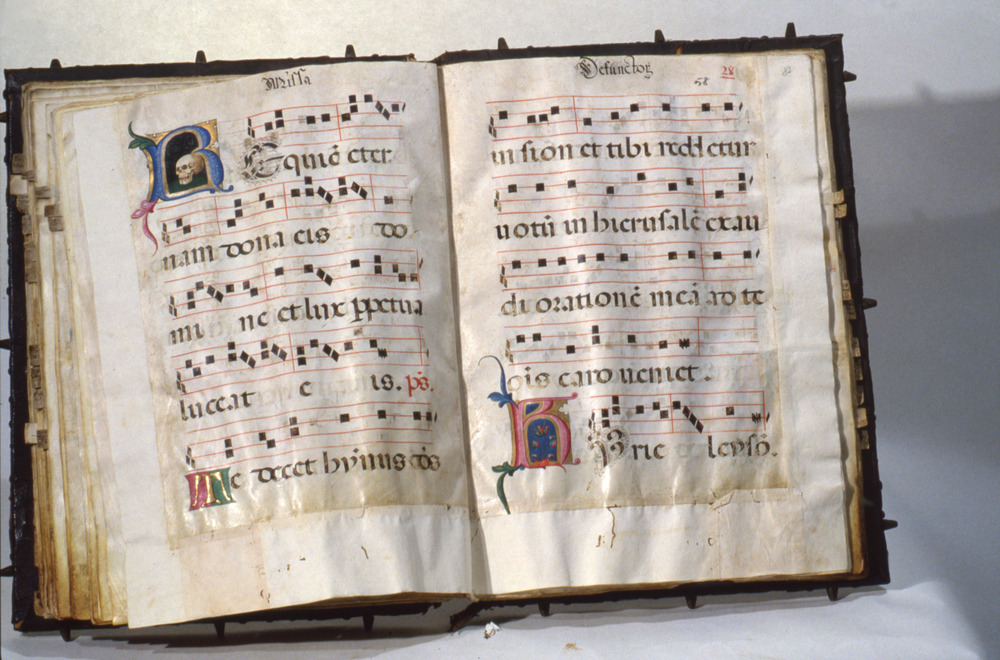 Missa
Requiē eter
nam dona eis do
mi ne et lux ppetua
luceat e is. ps.
Te decet hymnus ds
Defunctor 58 28
in sion et tibi reddetur
uotū in hierusalē exau
di orationē meā ad te
ois caro ueniet.
Kyrie leyso.